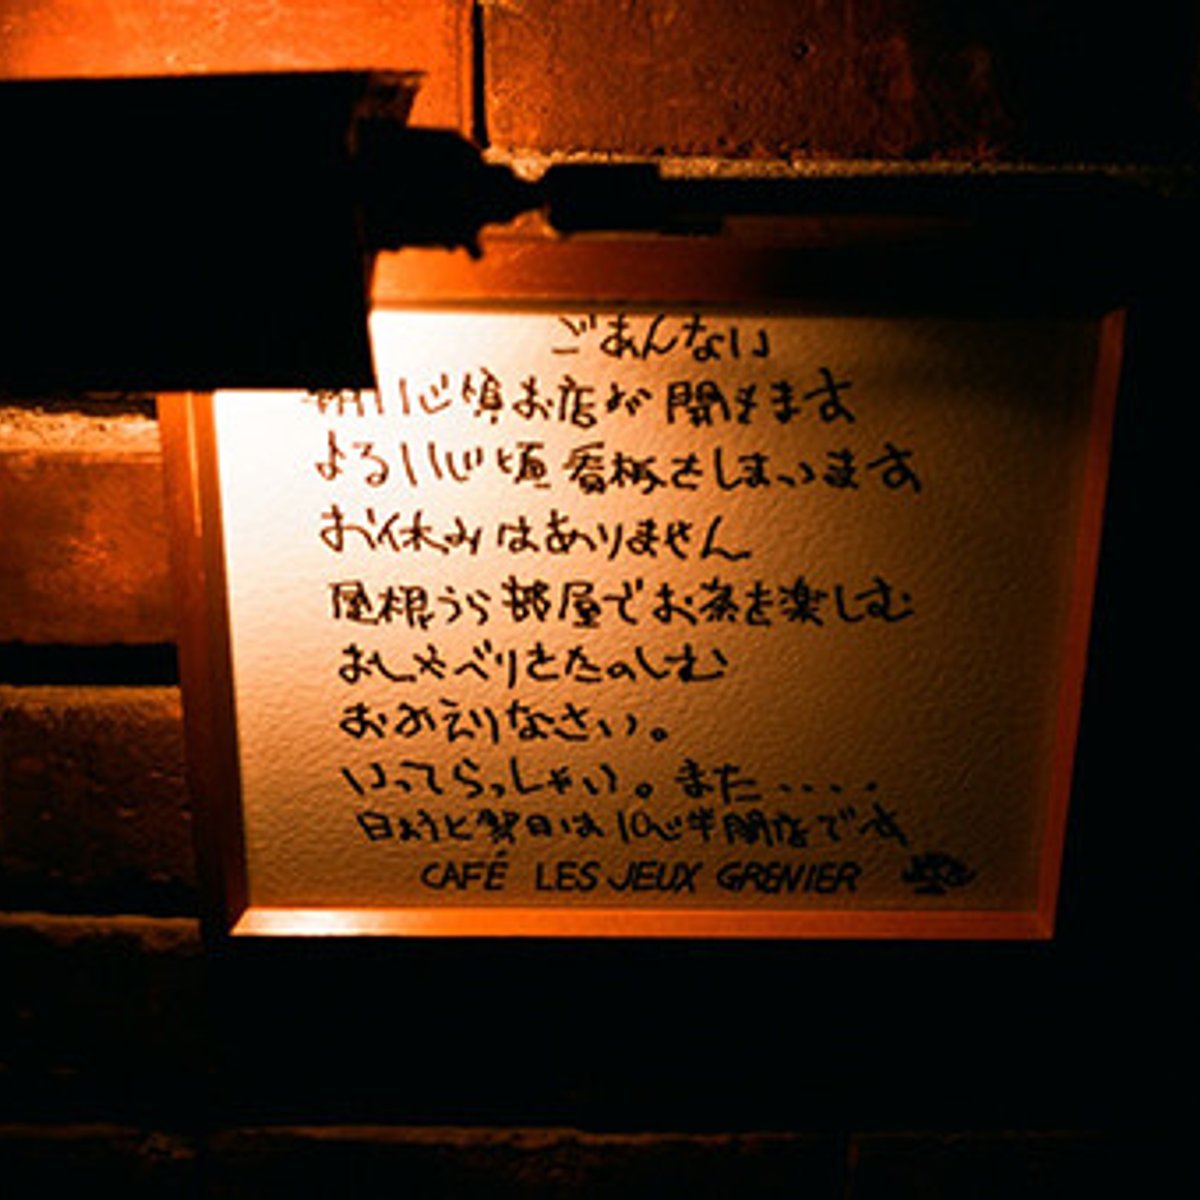 ごあんない
朝11じ頃お店が開きます
よる11じ頃看板をしまいます
お休みはありません
屋根うら部屋でお茶を楽しむ
おしゃべりをたのしむ
おかえりなさい。
いってらっしゃい。また・・・・
日ようと祭日は10じ半開店です
CAFÉ LES JEUX GRENIER